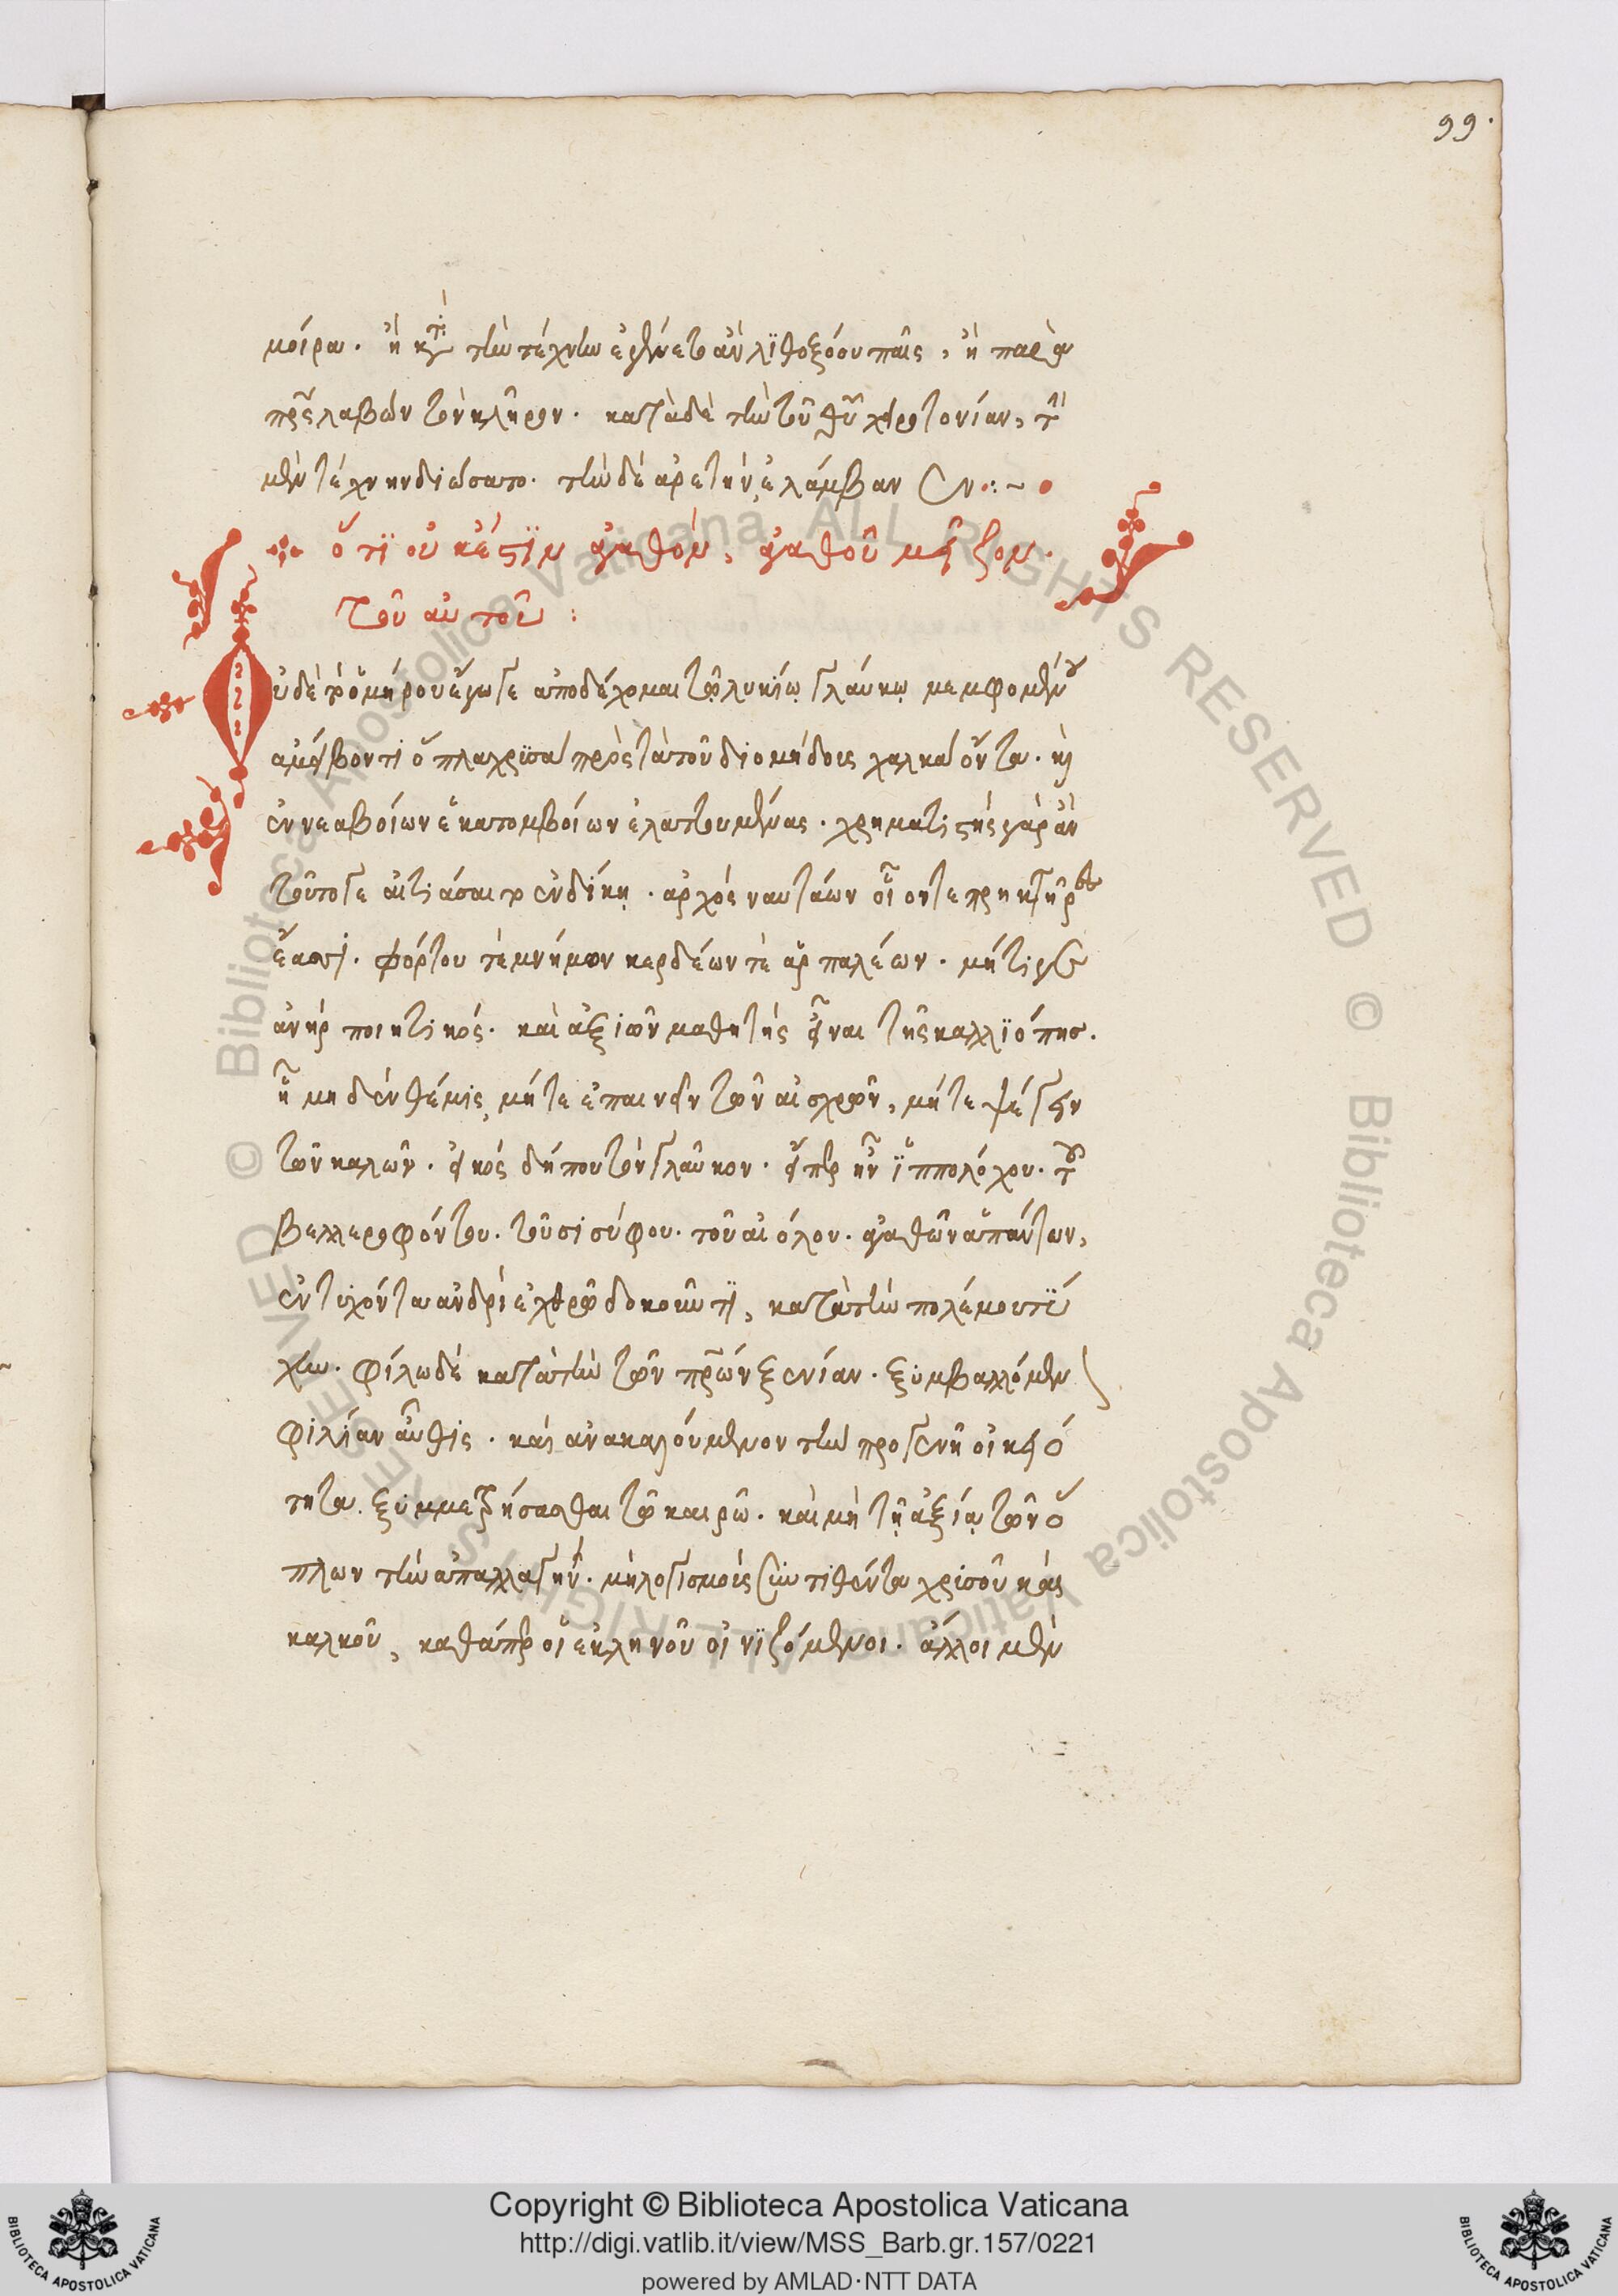 99.
μοίρα. ἢ κατὰ τὴν τέχνην ἐγένετο ἂν λιθοξόου παῖς, ἢ παρὰ
πρς λαβὼν τὸν κλῆρον. κατὰ δὲ τὴν τοῦ θῦ χειροτονίαν, τὴν
μὲν τέχνην διώσατο. τὴν δὲ ἀρετὴν ἐλάμβανεν
ὅτι οὐκ ἔστιν ἀγαθὸν, ἀγαθοῦ μεῖζον.
τοῦ αὐτοῦ:
Οὐδὲ τὸ ὁμήρου ἔγωγε ἀποδέχομαι τῷ λυκίῳ γλαύκῳ μεμφομένου
ἀμείβοντι ὅπλα χρυσᾶ πρὸς τὰ τοῦ διομήδους χαλκᾶ ὄντα. καὶ
ἐννεαβοίων ἑκατομβοίων ἐλαττουμένας. χρηματιστὴς γὰρ ἂν
τοῦτό γε αἰτιάσαιτο ἐν δίκῃ. ἀρχὸς ναυτάων οἷόν τε πρηκτῆρες
ἔασι. φόρτου τε μνήμων κερδέων τε ἁρπαλέων. μή τι γε
ἀνὴρ ποιητικός. καὶ ἀξιῶν μαθητὴς εἶναι τῆς καλλϊόπησ.
ᾗ μηδὲν θέμις, μήτε ἐπαινεῖν τῶν αἰσχρῶν, μήτε ψέγειν
τῶν καλῶν. εἰκός δήπου τὸν γλαῦκον. εἴπερ ἦν ἱππολόχου. τοῦ
βελλεροφόντου. τοῦ σισύφου. τοῦ αἰόλου. ἀγαθῶν ἁπάντων,
ἐντυχόντα ἀνδρὶ ἐχθρῷ δοκοῦντι, κατὰ τὴν πολέμου τύ
χην. φίλω δὲ κατὰ τὴν τῶν πρων ξενίαν. ξυμβαλλόμεν
φιλίαν αὖθις. καὶ ἀνακαλούμενον τὴν προγενῆ οἰκειό
τητα. ξυμμετρήσασθαι τῷ καιρῶ. καὶ μὴ τῇ ἀξίᾳ τῶν ὅ
πλων τὴν ἀπαλλαγήν. μὴ λογισμοὺς συντιθέντα χρυσοῦ καὶ
καλκοῦ, καθάπερ οἱ ἐκ ληνοῦ οἰνϊζόμενοι. ἄλλοι μὲν
Copyright © Biblioteca Apostolica Vaticana
http://digi.vatlib.it/view/MSS_Barb.gr.157/0221
powered by AMLAD·NTT DATA
BIBLIOTECA APOSTOLICA VATICANA
BIBLIOTECA APOSTOLICA VATICANA
© Biblioteca Apostolica Vaticana, ALL RIGHTS RESERVED © Biblioteca Apostolica Vaticana, ALL RIGHTS RESERVED